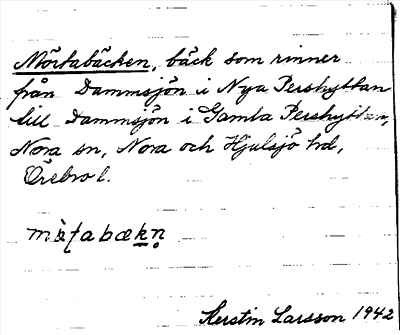 Mörtabäcken, bäck som rinner
från Dammsjön i Nya Pershyttan
till Dammsjön i Gamla Pershyttan,
Nora sn, Nora och Hjulsjö hd,
Örebro l.
Kerstin Larsson 1942